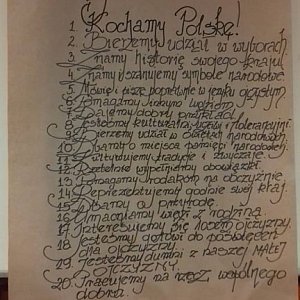 1. Kochamy Polskę!
2. Bierzemy udział w wyborach.
3. Znamy historię swojego kraju.
4. Znamy i szanujemy symbole narodowe.
5. Mówię i piszę poprawnie w języku ojczystym.
6. Pomagamy innym ludziom.
7. Dajemy dobry przykład.
8. Bądźmy kulturalni, i tolerancyjni.
9. Bierzemy udział w świętach narodowych.
10. Dbamy o miejsca pamięci narodowej.
11. Kultywujemy tradycje i zwyczaje.
12. Rzetelnie wypełniamy obowiązki.
13. Pomagamy rodakom na obczyźnie.
14. Reprezentujemy godnie swój kraj.
15. Dbamy o przyrodę.
16. Umacniamy więzi z rodziną.
17. Interesujemy się losem ojczyzny.
18. Jesteśmy gotowi do poświęceń
dla ojczyzny.
19. Jesteśmy dumni z naszej małej
ojczyzny.
20. Pracujemy na rzecz wspólnego
dobra.